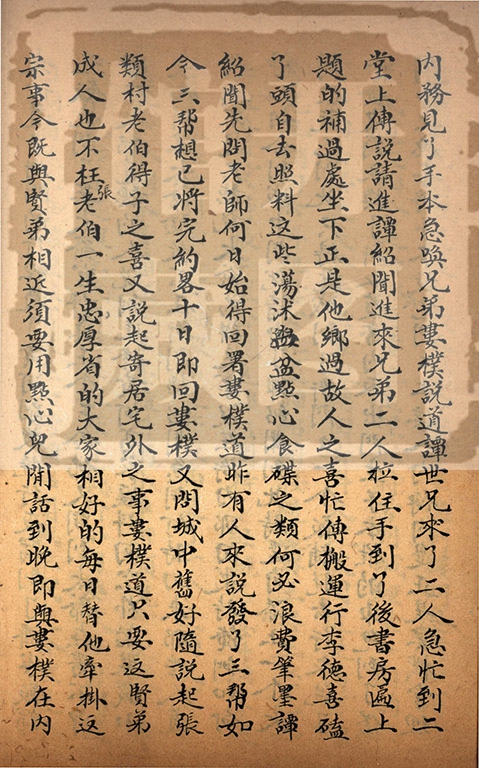 内務見了手本急喚兄弟婁樸說道譚世兄來了二人急忙到二
堂上傳說請進譚紹聞進來兄弟二人拉住手到了後書房匾上
題的補過處坐下正是他鄉過故人之喜忙傳搬運行李德喜磕
了頭自去照料這些蕩沐盥盆點心食碟之類何必浪費筆墨譚
紹聞先問老師何日始得回署婁樸道昨有人來說發了三幫如
今三幫想已將完約畧十日即回婁樸又問城中舊好隨說起張
類村老伯得子之喜又說起寄居宅外之事婁樸道只要這賢弟
成人也不枉張老伯一生忠厚省的大家相好的每日替他牽掛這
宗事今既與賢弟相近須要用點心兒閒話到晚即與婁樸在內